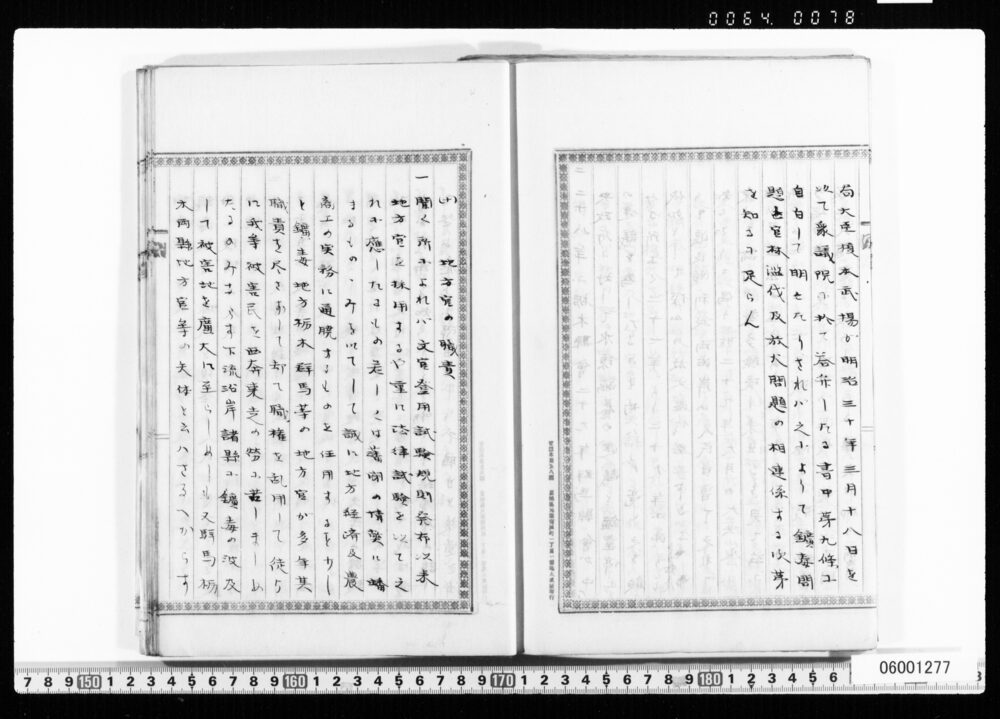 0064 0078
商大臣榎本武揚が明治三十年三月十八日を
以て衆議院に於て答弁したる書中第九條に
自白して明せたりされバ之によりて鑛毒問
題と官林濫伐及放火問題の相連係する次第
を知るに足らん
地方官の職責
一聞く所によれバ文官登用試験規則発布以来
地方官を採用するや重に法律試験を以て之
れが應したるもの若しくは
まるもの、みを以てして誠に地方経済及農
商工の実務に通暁するものを任用するを少し
と鑛毒地方栃木群馬等の地方官が多年其
職責を尽さずして却て職権を乱用して徒ら
に我等被害民を西奔東走の労に苦しましめ
たるのみならす下流沿岸諸縣に鑛毒の波及
して被害地を廣大に至らしめしも又群馬栃
木両縣地方官等の失体と云ハさるへからす
7 8 9 150 1 2 3 4 5 6 7 8 9 160 1 2 3 4 5 6 7 8 9 170 1 2 3 4 5 6 7 8 9 180 1 2 3 4 5 6
06001277